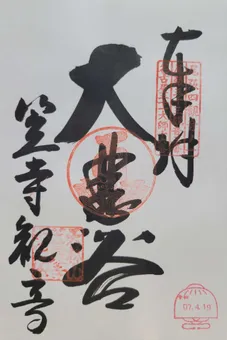 奉拝
大悲
笠寺観音
07.4.19